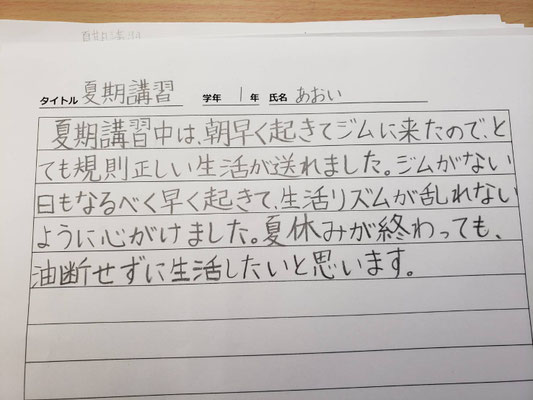 タイトル 夏期講習 学年 1年 氏名 あおい
夏期講習中は、朝早く起きてジムに来たので、と
ても規則正しい生活が送れました。ジムがない
日もなるべく早く起きて、生活リズムが乱れない
ように心がけました。夏休みが終わっても、
油断せずに生活したいと思います。